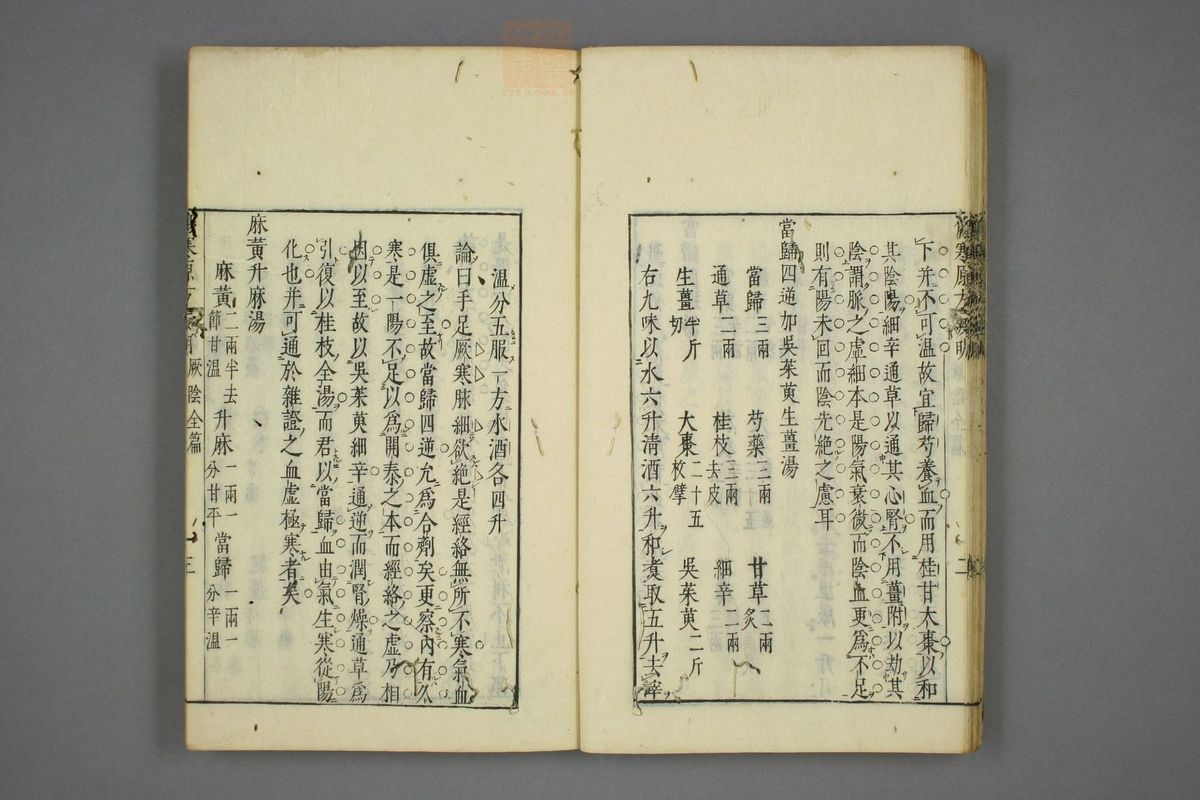 下并不可溫故宜歸芍養血而用桂甘大棗以和
其陰陽細辛通草以通其心腎不用薑附以劫其
陰謂脈之虛細本是陽氣衰微而陰血更為不足
則有陽未回而陰先絕之慮耳
當歸四逆加吳茱萸生薑湯
當歸三兩 芍藥三兩 甘草二兩炙
通草二兩 桂枝三兩去皮 細辛二兩
生薑半斤切 大棗二十五枚擘 吳茱萸二斤
右九味以水六升清酒六升和煮取五升去滓
溫分五服一方水酒各四升
論曰手足厥寒脉細欲絕是經絡無所不寒氣血
俱虛之至故當歸四逆允爲合劑矣更察內有久
寒是一陽不足以爲開泰之本而經絡之虛乃相
因以至故以吳茱萸細辛通逆而潤腎燥通草爲
引復以桂枝全湯而君以當歸血由氣生寒從陽
化也并可通於雜證之血虛極寒者矣
麻黃升麻湯
麻黃二兩半去節甘溫 升麻一兩一分甘平 當歸一兩一分辛溫
厥陰全篇
三